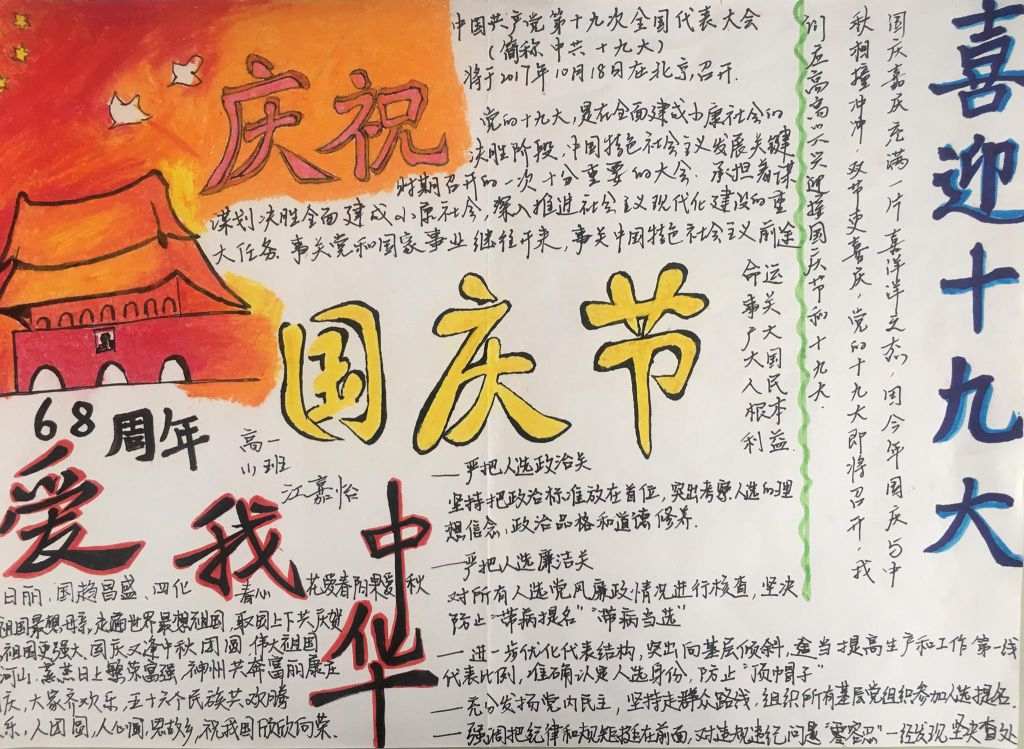 喜迎十九大
国庆嘉庆充满一片喜洋洋之态,因今年国庆与中
秋相撞冲冲,双节更喜庆,党的十九大即将召开,我
们应高高兴兴迎接国庆节和十九大.
中国共产党第十九次全国代表大会
(简称中共十九大)
将于2017年10月18日在北京召开.
党的十九大,是在全面建成小康社会的
决胜阶段,中国特色社会主义发展关键
时期召开的一次十分重要的大会.承担着谋
谋划决胜全面建成小康社会,深入推进社会主义现代化建设的重
大任务.事关党和国家事业继往开来,事关中国特色社会主义前途
命运
事关
广大
大国
人民
根本
利益
庆祝
国庆节
68周年
高一
小班
江嘉怡
爱我中华
日丽,国趋昌盛、四化 春心 花爱春雨果爱秋
祖国最想母亲,走遍世界最想祖国,
祖国更强大,国庆又逢中秋团圆,伟大祖国
河山,蒸蒸日上繁荣富强,神州共奔富丽康庄
庆,大家齐欢乐,五十六个民族共欢腾
乐,人团圆,人心圆,思故乡,祝我国欣欣向荣.
—严把人选政治关
坚持把政治标准放在首位,突出考察人选的理
想信念、政治品格和道德修养.
—严把人选廉洁关
对所有人选党风廉政情况进行核查,坚决
防止“带病提名”“带病当选”
—进一步优化代表结构,突出向基层倾斜,适当提高生产和工作第一线
代表比例,准确认定人选身份,防止“顶帽子”
—充分发扬党内民主,坚持走群众路线,组织所有基层党组织参加人选提名.
—强调把纪律和规矩挺在前面,对违规违纪问题“零容忍”一经发现,坚决查处